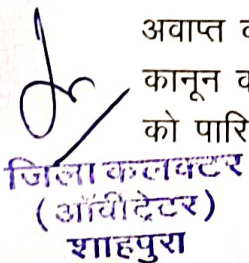 अवाप्त
कानून
को पारि
जिला कलक्टर
(ऑर्वीट्रेटर)
शाहपुरा